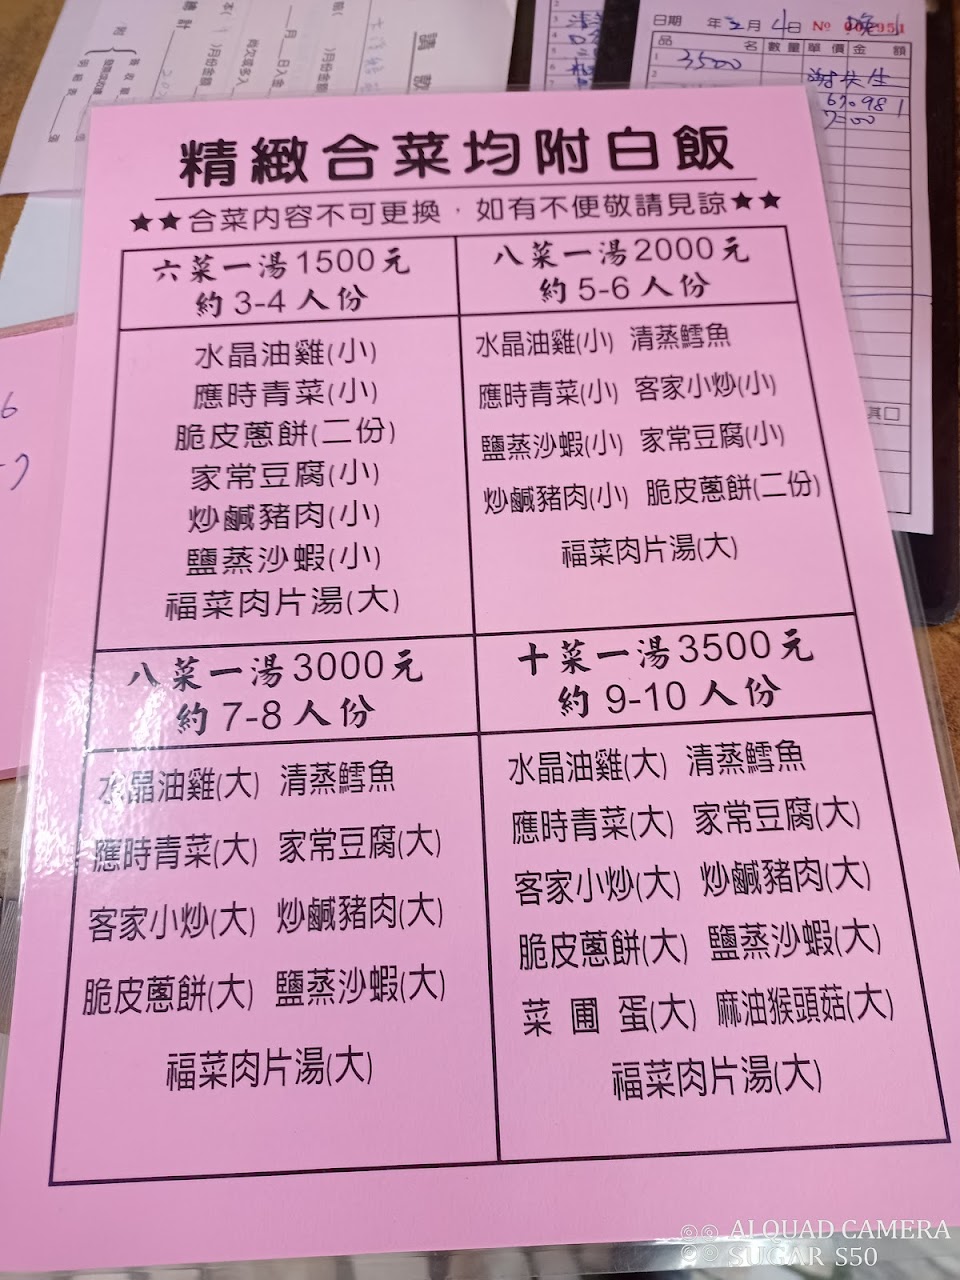 日期 年 2月 4日 No
品 名 數量 單價 金 額
3500
精緻合菜均附白飯
★★合菜內容不可更換，如有不便敬請見諒★★
六菜一湯1500元
約3-4人份
水晶油雞(小)
應時青菜(小)
脆皮蔥餅(二份)
家常豆腐(小)
炒鹹豬肉(小)
鹽蒸沙蝦(小)
福菜肉片湯(大)
八菜一湯2000元
約5-6人份
水晶油雞(小) 清蒸鱈魚
應時青菜(小) 客家小炒(小)
鹽蒸沙蝦(小) 家常豆腐(小)
炒鹹豬肉(小) 脆皮蔥餅(二份)
福菜肉片湯(大)
八菜一湯3000元
約7-8人份
水晶油雞(大) 清蒸鱈魚
應時青菜(大) 家常豆腐(大)
客家小炒(大) 炒鹹豬肉(大)
脆皮蔥餅(大) 鹽蒸沙蝦(大)
福菜肉片湯(大)
十菜一湯3500元
約9-10人份
水晶油雞(大) 清蒸鱈魚
應時青菜(大) 家常豆腐(大)
客家小炒(大) 炒鹹豬肉(大)
脆皮蔥餅(大) 鹽蒸沙蝦(大)
菜圃蛋(大) 麻油猴頭菇(大)
福菜肉片湯(大)
AI QUAD CAMERA
SUGAR S50